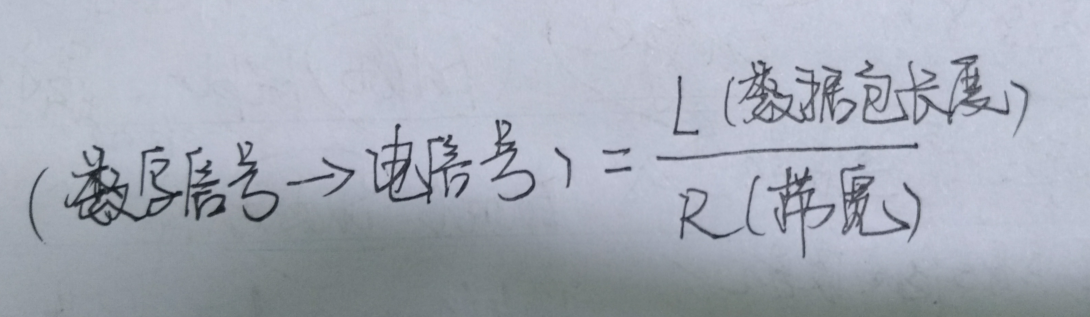 (数字信号→电信号) = L(数据包长度) / R(带宽)